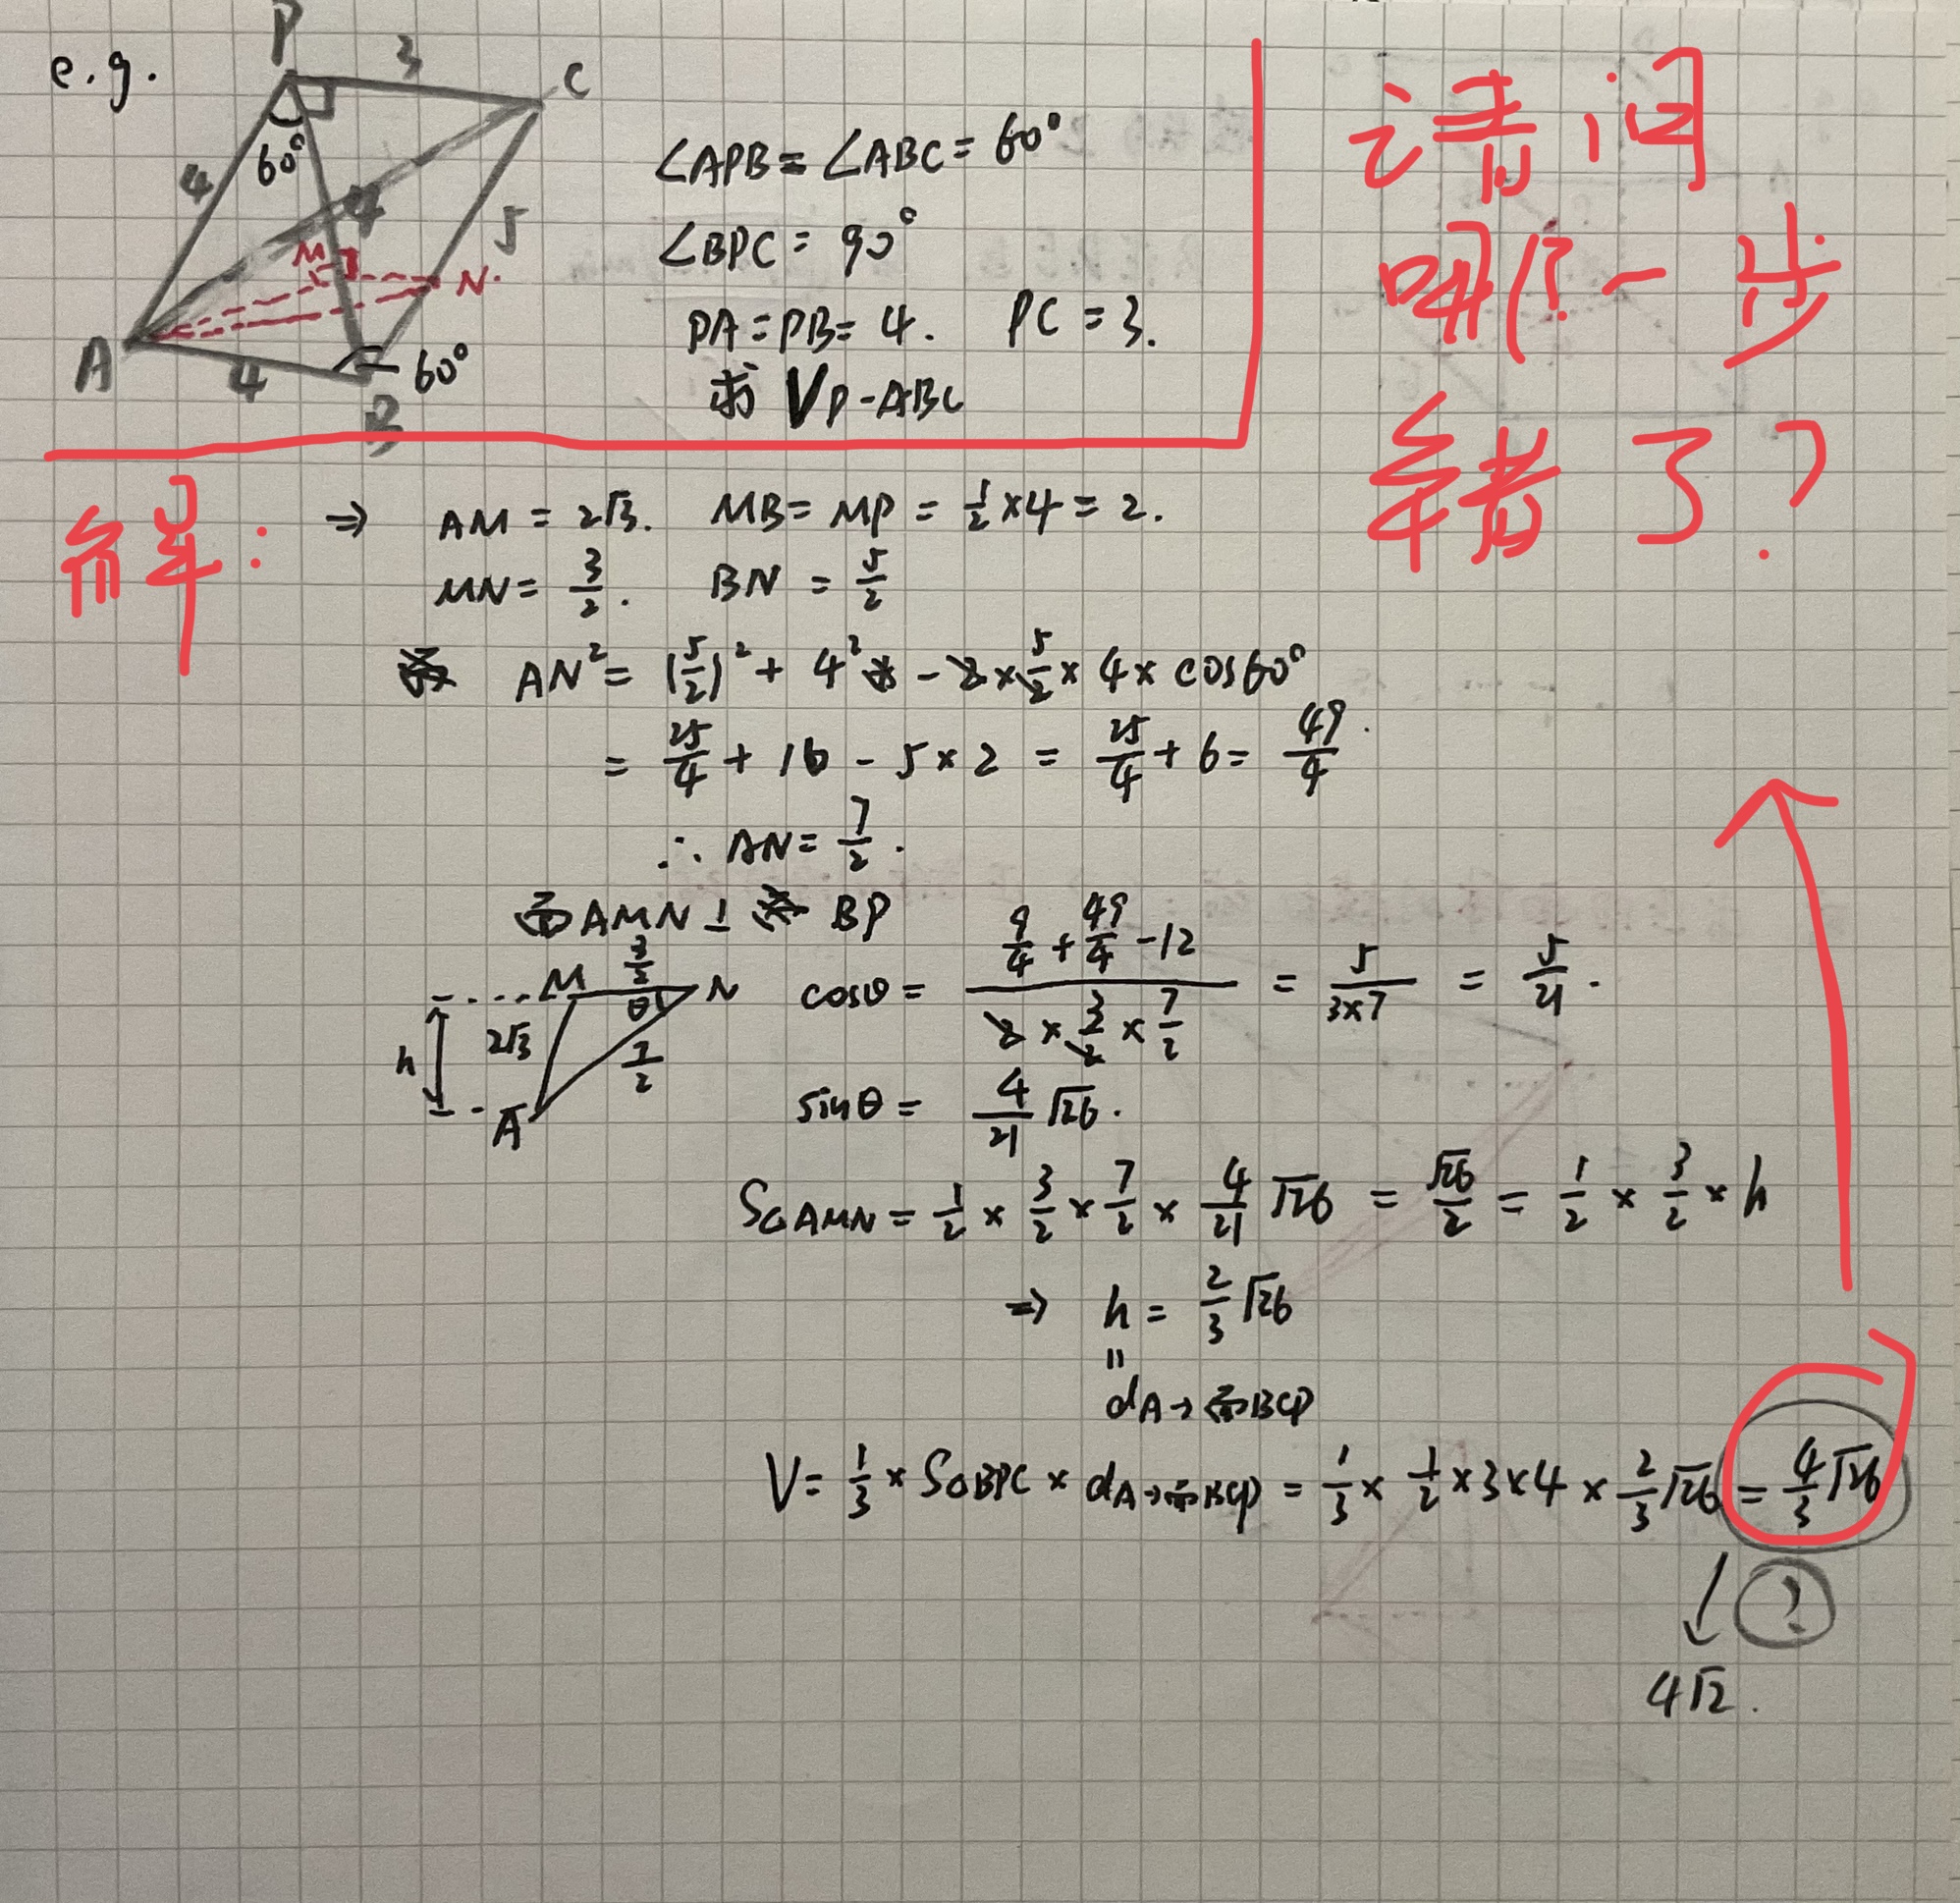 e.g.
P
3
C
60°
4
4
5
M
N.
A
4
B
60°
∠APB = ∠ABC = 60°
∠BPC = 90°
PA = PB = 4. PC = 3.
求 VP-ABC
请问
哪一步
错了?
解:
⇒ AM = 2√3. MB = MP = 1/2 × 4 = 2.
MN = 3/2. BN = 5/2
AN² = (5/2)² + 4² - 2 × 5/2 × 4 × cos60°
= 25/4 + 16 - 5 × 2 = 25/4 + 6 = 49/4.
∴ AN = 7/2.
面AMN ⊥ BP
M 3/2 N
θ
h
2√3
7/2
A
cosθ = (9/4 + 49/4 - 12)/(2 × 3/2 × 7/2) = 5/(3×7) = 5/21.
sinθ = 4/21 √26.
S△AMN = 1/2 × 3/2 × 7/2 × 4/21 √26 = √26/2 = 1/2 × 3/2 × h
⇒ h = 2/3 √26
=
dA→面BCP
V = 1/3 × S△BPC × dA→面BCP = 1/3 × 1/2 × 3 × 4 × 2/3 √26 = 4/3 √26
↓ ?
4√2.